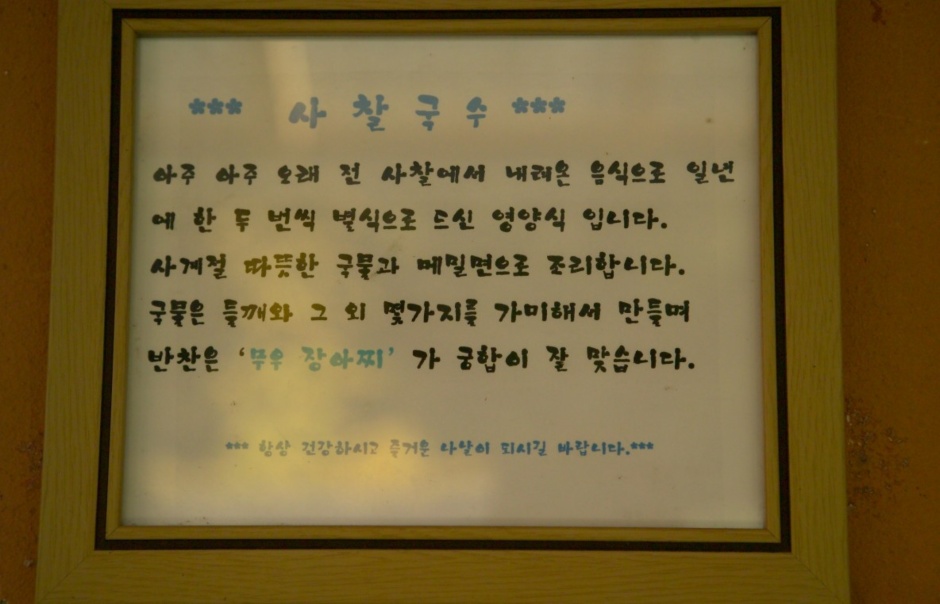 *** 사 찰 국 수 ***
아주 아주 오래 전 사찰에서 내려온 음식으로 일년
에 한 두 번씩 별식으로 드신 영양식 입니다.
사계절 따뜻한 국물과 메밀면으로 조리합니다.
국물은 들깨와 그 외 몇가지를 가미해서 만들며
반찬은 '무우 장아찌' 가 궁합이 잘 맞습니다.
*** 항상 건강하시고 즐거운 나날이 되시길 바랍니다.***